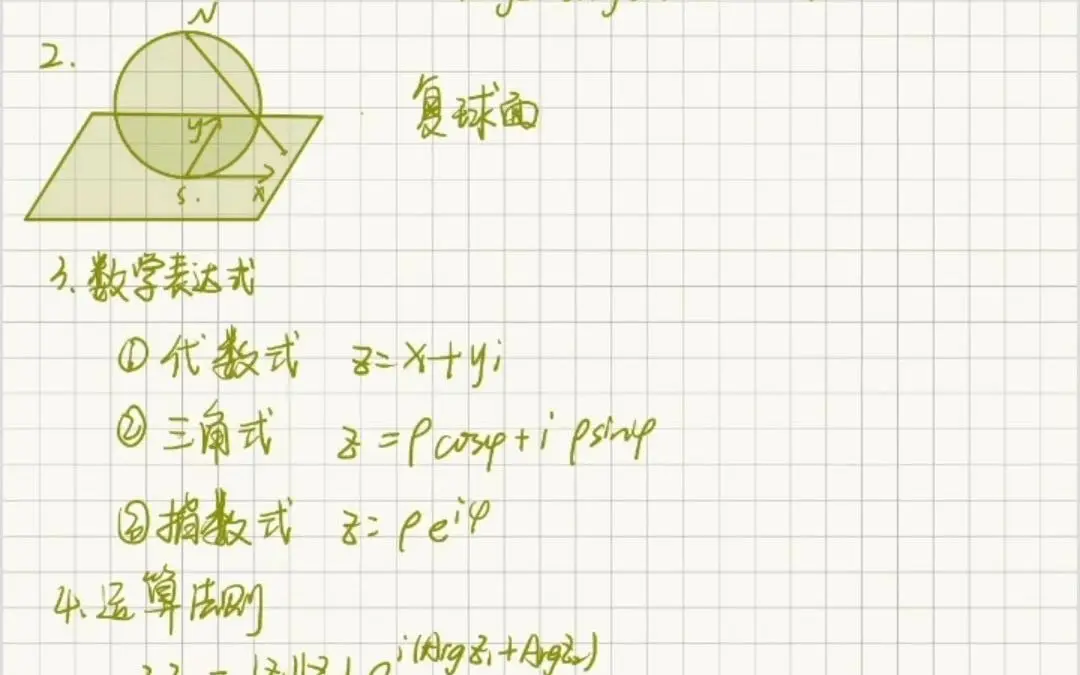 N
2.
复球面
y
S.
x
3.数学表达式
① 代数式 z=x+yi
② 三角式 z=ρcosφ+iρsinφ
③ 指数式 z=ρe^{iφ}
4.运算法则
e^{i(Argz₁+Argz₂)}